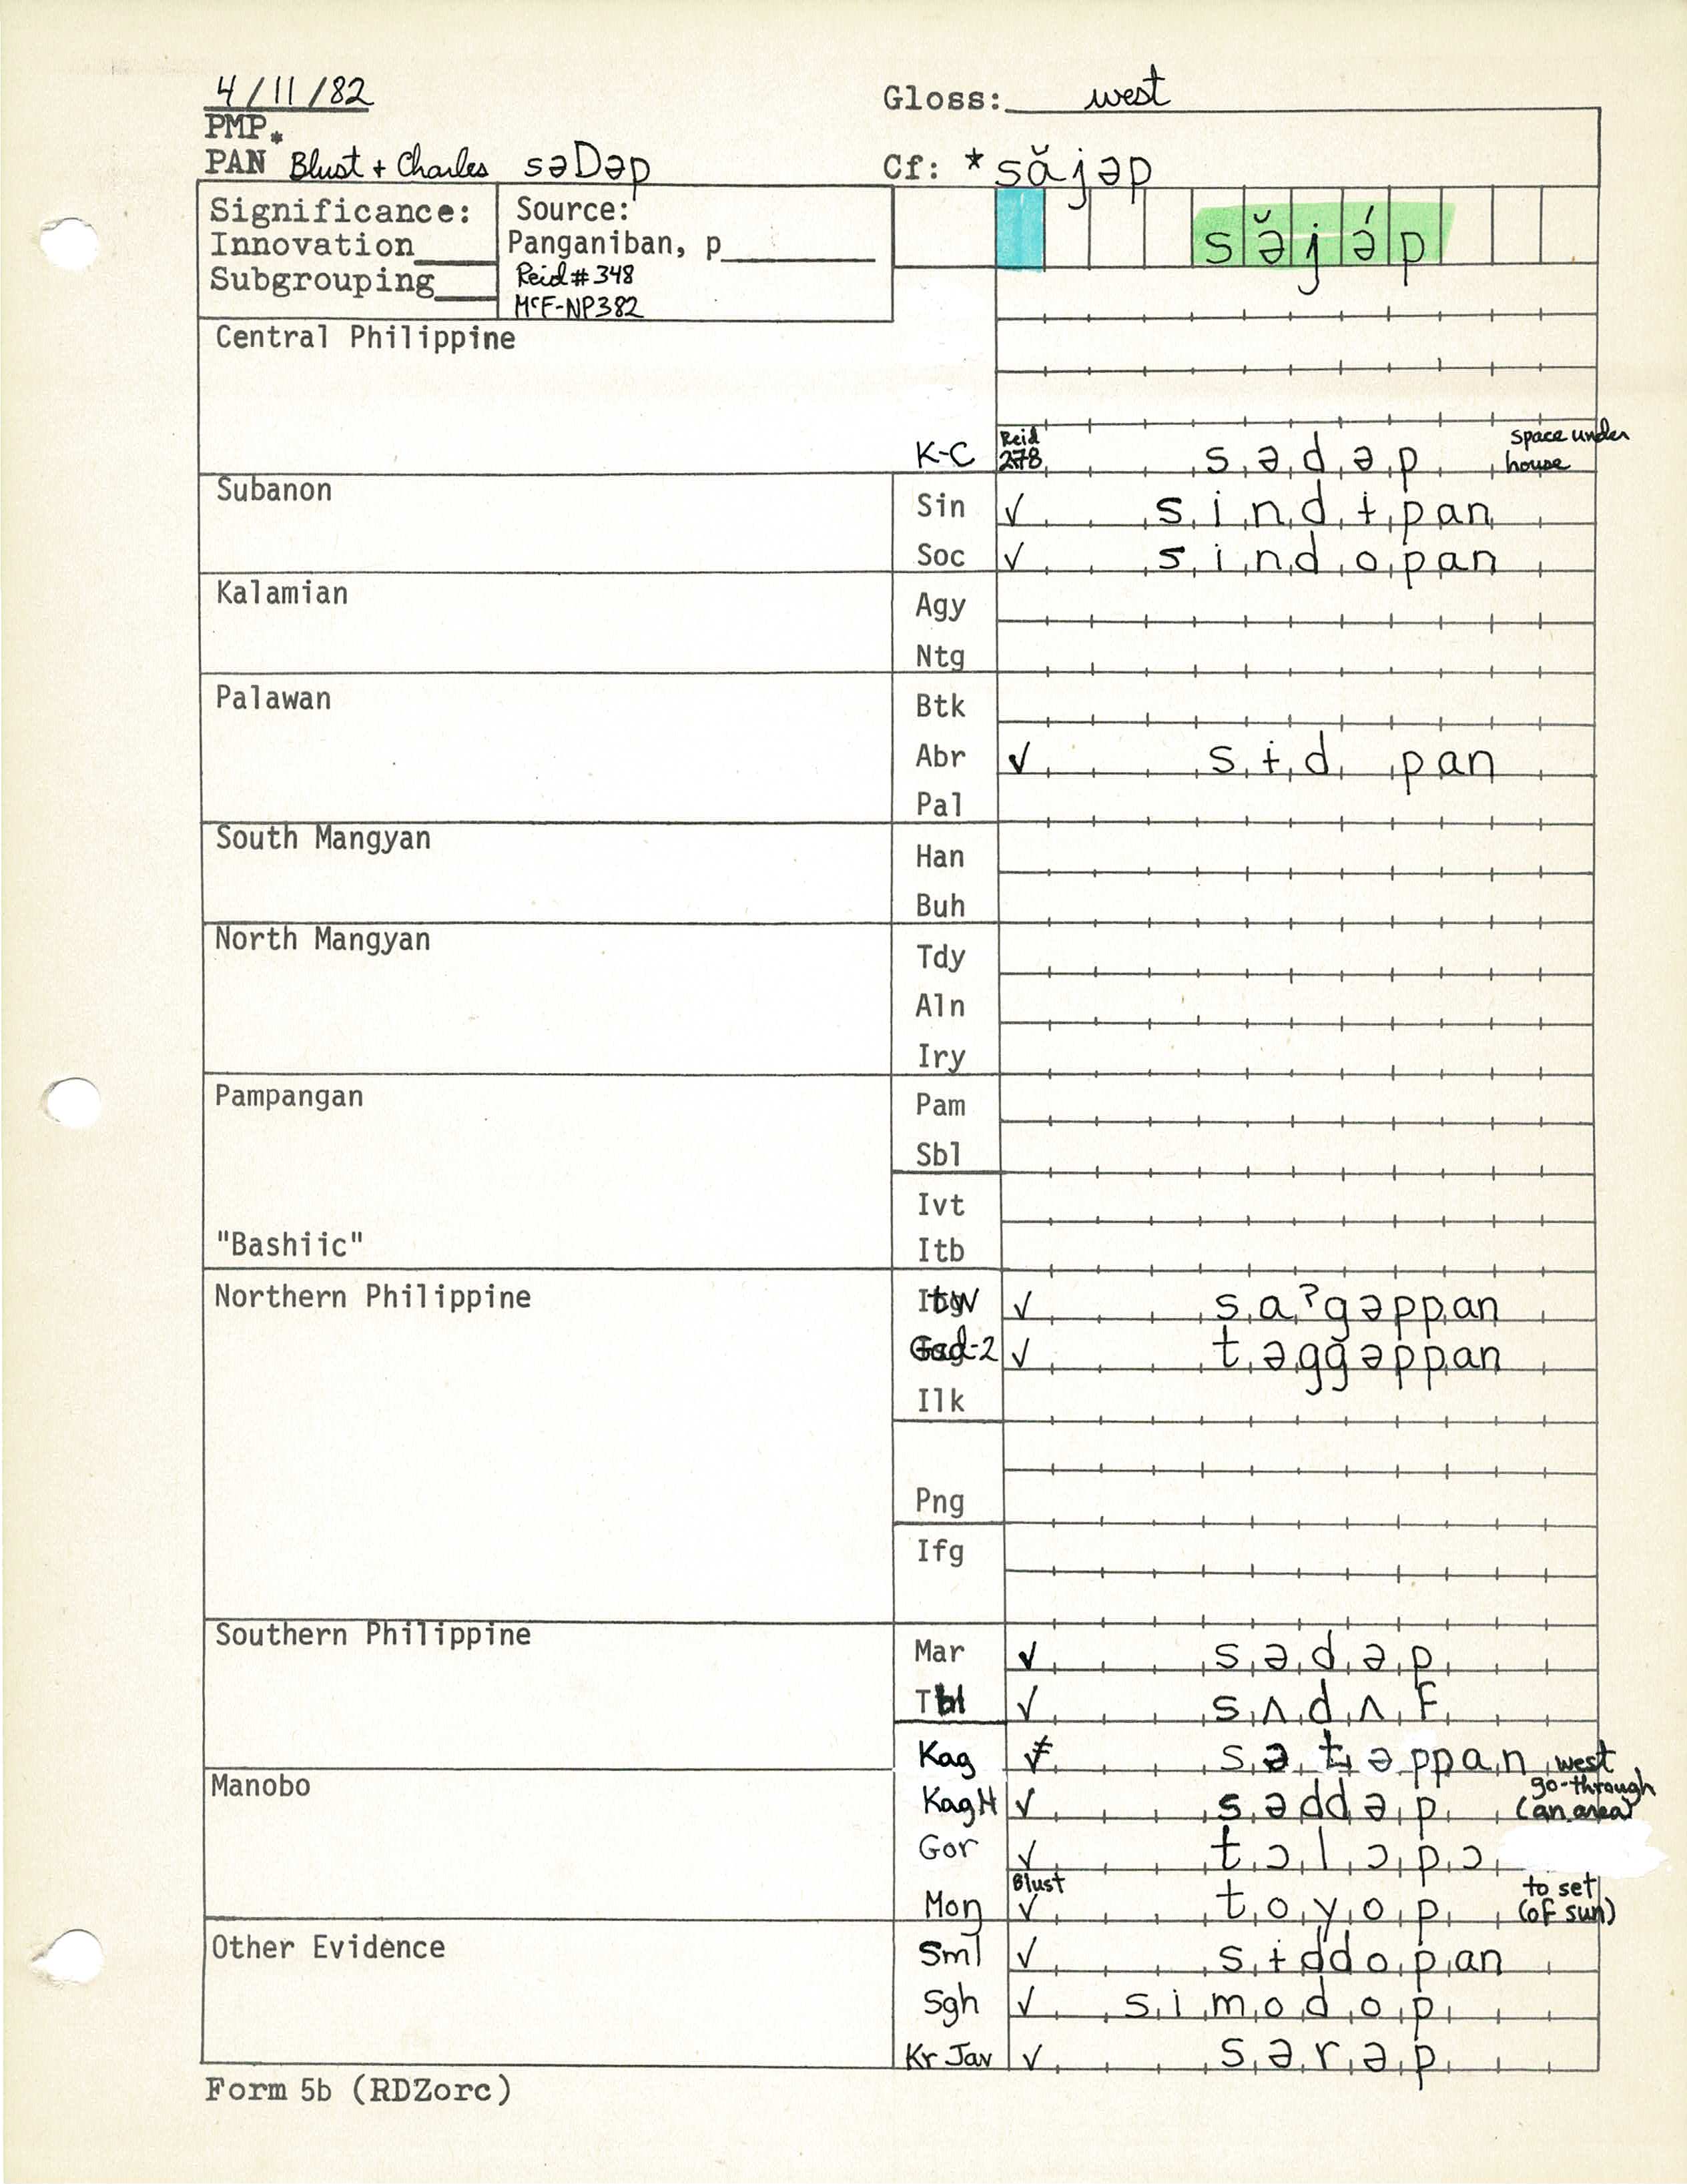 4/11/82
Gloss: west
PMP *
PAN Blust + Charles səDəp
Cf: *săjəp
Significance:
Innovation
Subgrouping
Source:
Panganiban, p
Reid #348
McF-NP382
sə̆jə́p
Central Philippine
K-C Reid 278 sədəp space under house
Subanon
Sin ✓ sindɨpan
Soc ✓ sindopan
Kalamian
Agy
Ntg
Palawan
Btk
Abr ✓ sɨd pan
Pal
South Mangyan
Han
Buh
North Mangyan
Tdy
Aln
Iry
Pampangan
Pam
Sbl
Ivt
"Bashiic"
Itb
Northern Philippine
ItW ✓ saʔgəppan
Gad-2 ✓ təggəppan
Ilk
Png
Ifg
Southern Philippine
Mar ✓ sədəp
Tbl ✓ sʌdʌF
Kag ✓ sətəppan west
Manobo
KagH ✓ səddəp go-through (an area)
Gor ✓ tɔlɔpɔ
Mon Blust ✓ toyop to set (of sun)
Other Evidence
Sml ✓ sɨddopan
Sgh ✓ simodop
Kr Jav ✓ sərəp
Form 5b (RDZorc)